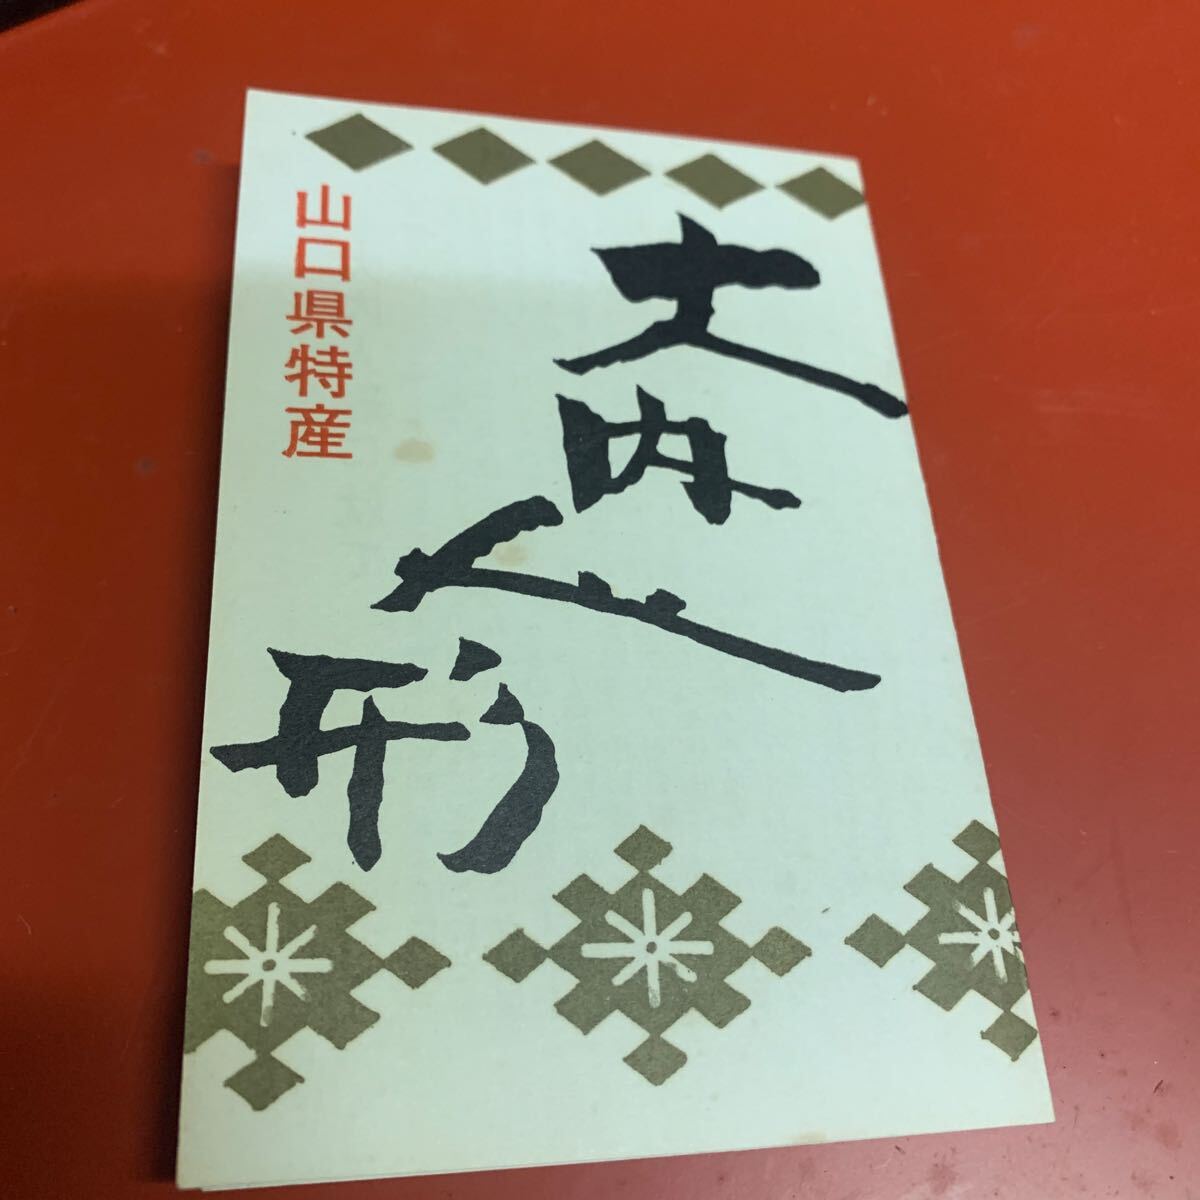 大内人形
山口県特産